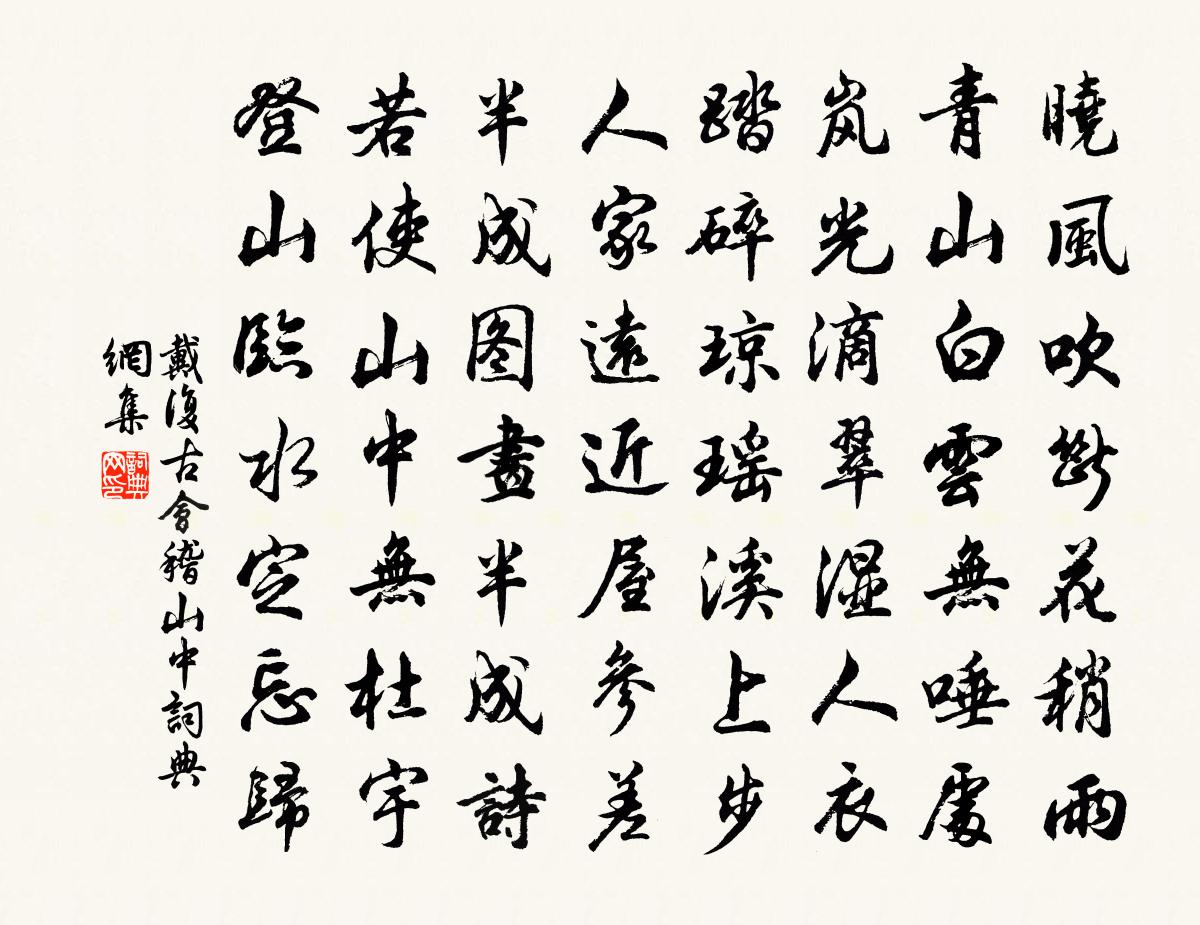 曉風吹斷花稍雨
青山白雲無唾處
岚光滴翠湿人衣
踏碎琼瑶溪上步
人家遠近屋參差
半成图畫半成詩
若使山中無杜宇
登山臨水定忘歸
戴復古會稽山中詞典
網集
詞典
网印